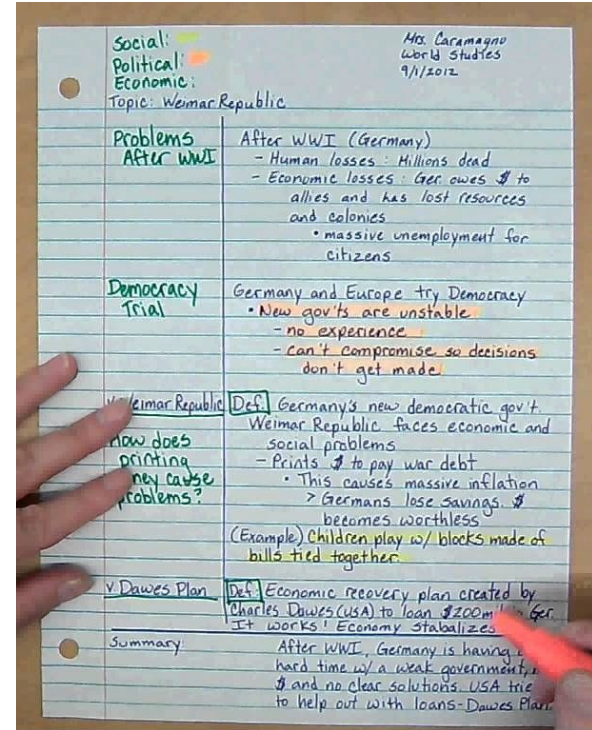 Social:
Political:
Economic:
Mrs. Caramagno
World Studies
9/1/2012
Topic: Weimar Republic
Problems
After WWI
After WWI (Germany)
- Human losses: Millions dead
- Economic losses: Ger. owes $ to
allies and has lost resources
and colonies
• massive unemployment for
citizens
Democracy
Trial
Germany and Europe try Democracy
• New gov'ts are unstable
- no experience
- can't compromise so decisions
don't get made
Weimar Republic
Def. Germany's new democratic gov't.
Weimar Republic faces economic and
social problems
How does
printing
cause
problems?
- Prints $ to pay war debt
• This causes massive inflation
> Germans lose savings. $
becomes worthless
(Example) Children play w/ blocks made of
bills tied together.
v. Dawes Plan
Def. Economic recovery plan created by
Charles Dawes (USA) to loan $200 Ger.
It works! Economy stabalizes
Summary:
After WWI, Germany is having
hard time w/ a weak government,
$ and no clear solutions. USA
to help out with loans - Dawes Plan